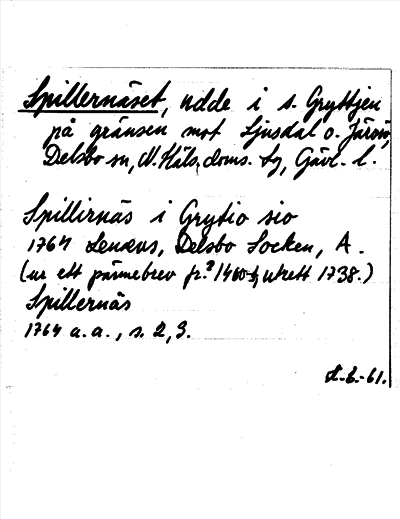 Spillernäset, udde i s. Gryttjen
på gränsen mot Ljusdal o. Järvsö,
Delsbo sn, N. Häls. doms. tg, Gävl. l.
Spillirnäs i Grytio sio
1764 Lenæus, Delsbo Socken, A.
(ur ett pärmebrev fr. 1400-t, utrett 1738.)
Spillernäs
1764 a.a., s. 2, 3.
-61.